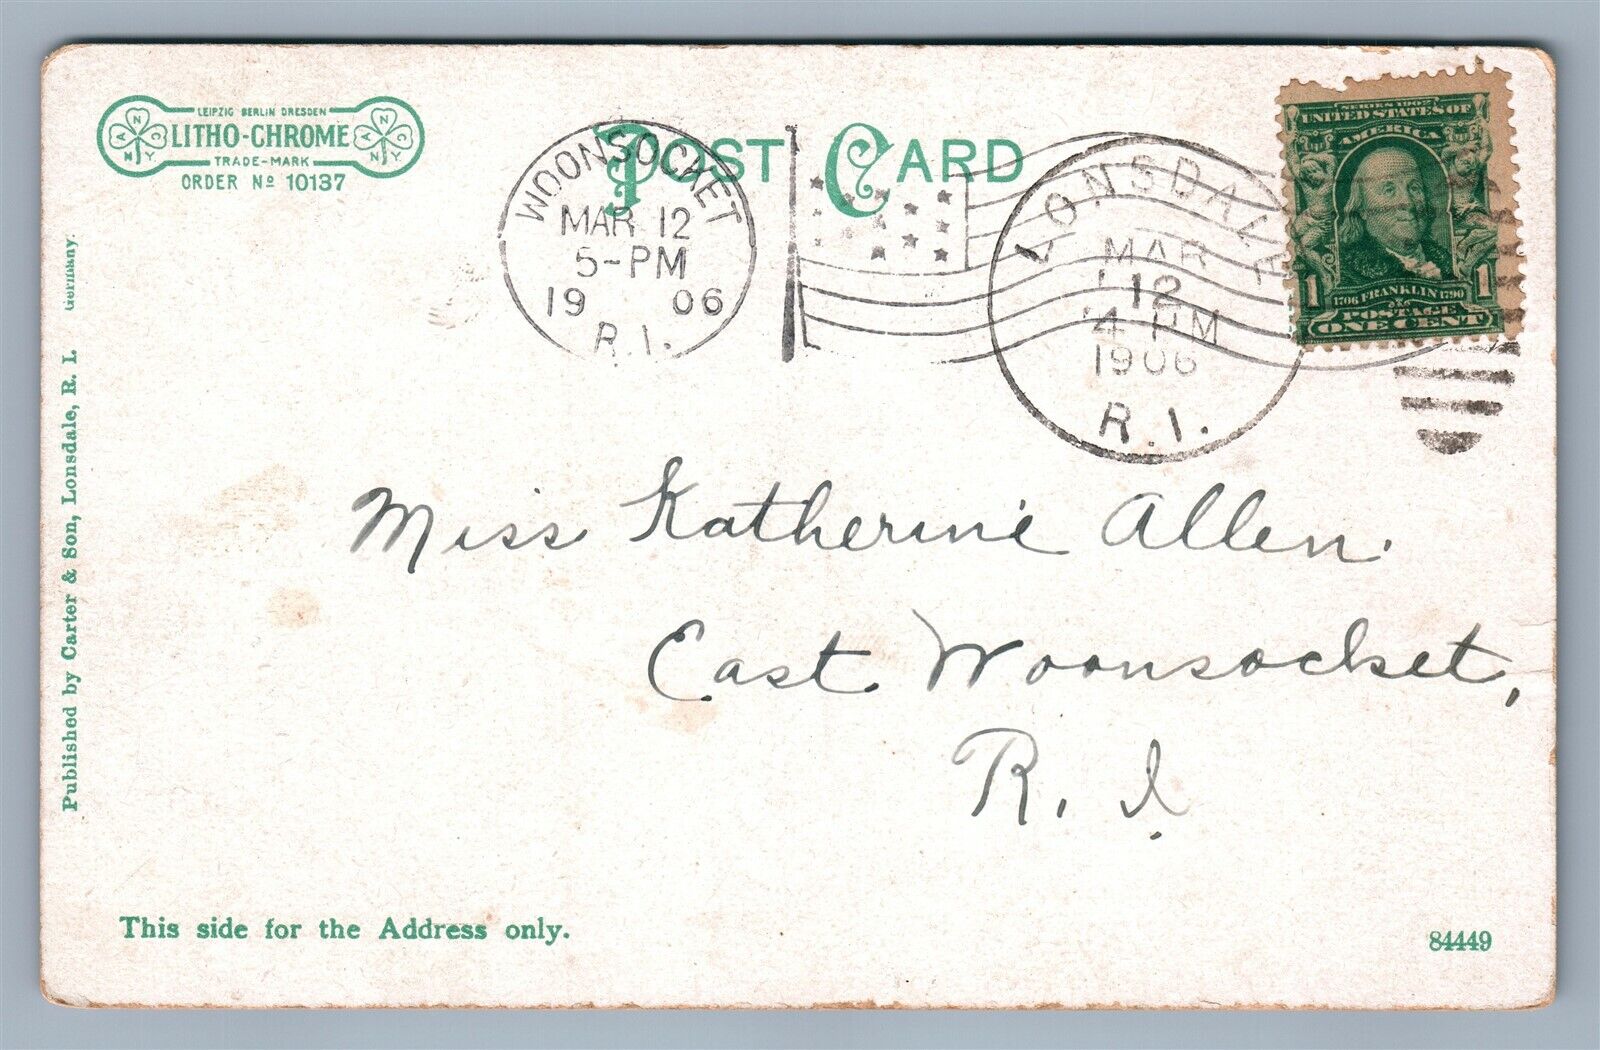 LEIPZIG BERLIN DRESDEN
LITHO-CHROME
TRADE-MARK
ORDER No 10137
POST CARD
WOONSOCKET
MAR 12
5-PM
19 06
R.I.
LONSDALE
MAR
12
4 PM
1906
R.I.
SERIES 1902
UNITED STATES OF
AMERICA
1 1
1706 FRANKLIN 1790
POSTAGE
ONE CENT
Published by Carter & Son, Lonsdale, R. I. Germany.
Miss Katherine Allen.
East Woonsocket,
R. I.
This side for the Address only.
84449